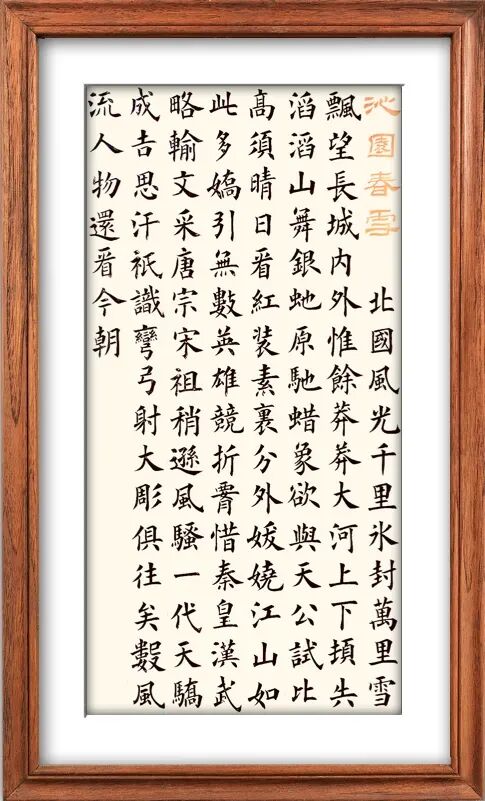 沁園春雪 北國風光千里氷封萬里雪
飄望長城内外惟餘莽莽大河上下頓失
滔滔山舞銀虵原馳蜡象欲與天公試比
髙須晴日看紅装素裹分外妖嬈江山如
此多嬌引無數英雄競折腰惜秦皇漢武
略輸文采唐宗宋祖稍遜風騷一代天驕
成吉思汗祇識彎弓射大彫俱往矣數風
流人物還看今朝